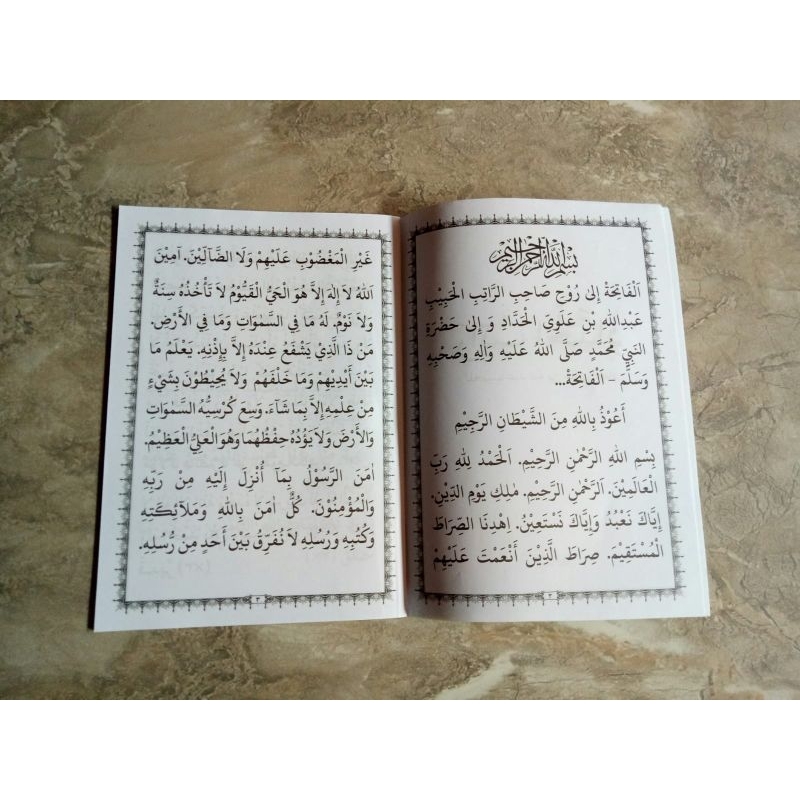 بسم الله الرحمن الرحيم
اَلْفَاتِحَةُ إِلَى رُوْحِ صَاحِبِ الرَّاتِبِ الْحَبِيْبِ
عَبْدِاللهِ بْنِ عَلَوِي الْحَدَّادِ وَ إِلَى حَضْرَةِ
النَّبِيِّ مُحَمَّدٍ صَلَّى اللهُ عَلَيْهِ وَاٰلِهِ وَصَحْبِهِ
وَسَلَّمَ – اَلْفَاتِحَةْ...
أَعُوْذُ بِاللهِ مِنَ الشَّيْطَانِ الرَّجِيْمِ
بِسْمِ اللهِ الرَّحْمٰنِ الرَّحِيْمِ. اَلْحَمْدُ لِلّٰهِ رَبِّ
الْعَالَمِيْنَ. اَلرَّحْمٰنِ الرَّحِيْمِ. مٰلِكِ يَوْمِ الدِّيْنِ.
إِيَّاكَ نَعْبُدُ وَإِيَّاكَ نَسْتَعِيْنُ. اِهْدِنَا الصِّرَاطَ
الْمُسْتَقِيْمَ. صِرَاطَ الَّذِيْنَ أَنْعَمْتَ عَلَيْهِمْ
٢
غَيْرِ الْمَغْضُوْبِ عَلَيْهِمْ وَلَا الضَّآلِّيْنَ. آمِيْنَ
اَللهُ لَا إِلٰهَ إِلاَّ هُوَ الْحَيُّ الْقَيُّوْمُ لَا تَأْخُذُهُ سِنَةٌ
وَلَا نَوْمٌ. لَهُ مَا فِي السَّمٰوَاتِ وَمَا فِي الْأَرْضِ.
مَنْ ذَا الَّذِيْ يَشْفَعُ عِنْدَهُ إِلاَّ بِإِذْنِهِ. يَعْلَمُ مَا
بَيْنَ أَيْدِيْهِمْ وَمَا خَلْفَهُمْ وَلَا يُحِيْطُوْنَ بِشَيْءٍ
مِنْ عِلْمِهِ إِلاَّ بِمَا شَآءَ. وَسِعَ كُرْسِيُّهُ السَّمٰوَاتِ
وَالْأَرْضَ وَلَا يَؤُدُهُ حِفْظُهُمَا وَهُوَ الْعَلِيُّ الْعَظِيْمُ.
اٰمَنَ الرَّسُوْلُ بِمَآ أُنْزِلَ إِلَيْهِ مِنْ رَبِّهِ
وَالْمُؤْمِنُوْنَ. كُلٌّ اٰمَنَ بِاللهِ وَمَلَآئِكَتِهِ
وَكُتُبِهِ وَرُسُلِهِ لَا نُفَرِّقُ بَيْنَ أَحَدٍ مِنْ رُّسُلِهِ.
٣